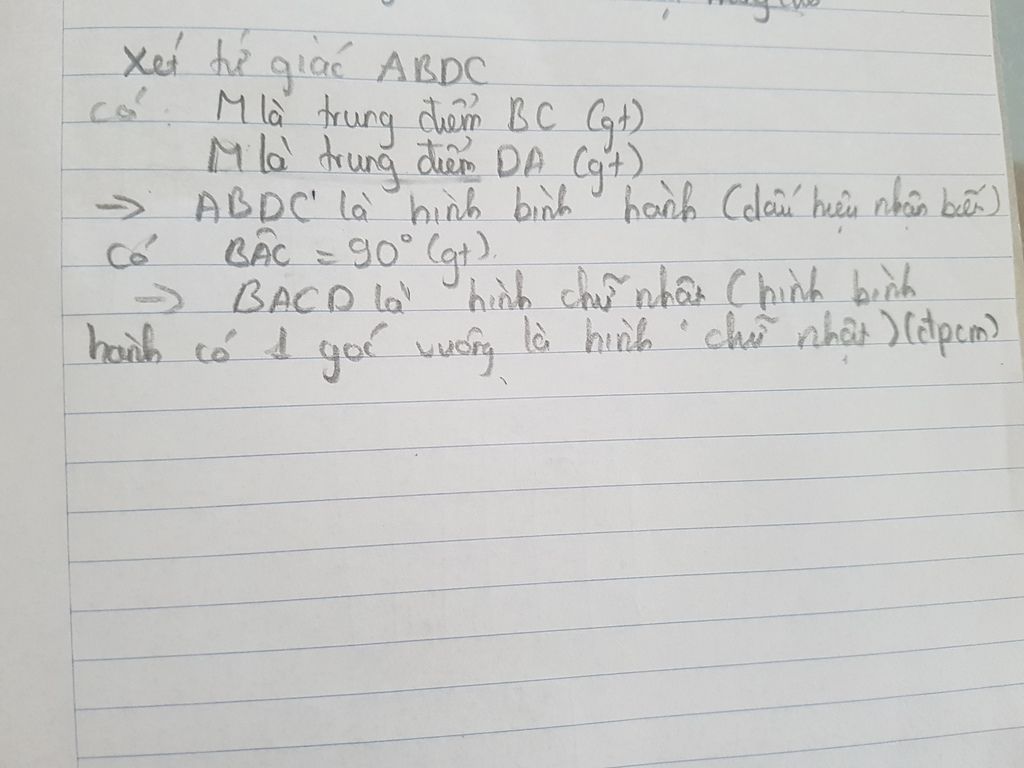 Xét tứ giác ABDC
có: M là trung điểm BC (gt)
M là trung điểm DA (gt)
→ ABDC là hình bình hành (dấu hiệu nhận biết)
Có BÂC = 90° (gt).
→ BACD là hình chữ nhật (hình bình
hành có 1 góc vuông là hình chữ nhật) (đpcm)